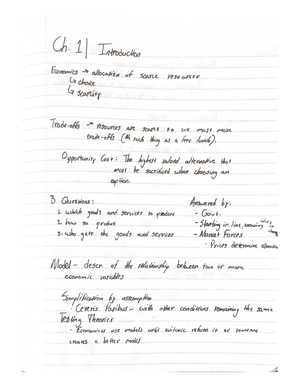 Ch. 1 | Introduction
Economics → allocation of scarce resources
↳ choice
↳ scarcity
Trade-offs → resources are scarce so we must make
trade-offs (no such thing as a free lunch).
Opportunity Cost: The highest valued alternative that
must be sacrificed when choosing an
option.
3 Questions:
1. which goods and services to produce
2. how to produce
3. who gets the goods and services
Answered by:
- Govt.
- Starting in line,
- Market Forces
- Prices determine allocation
Model - descr of the relationship between two or more
economic variables
Simplification by assumption
- Ceteris Paribus - with other conditions remaining the same
Testing Theories
- Economics use models until evidence refutes it or someone
creates a better model